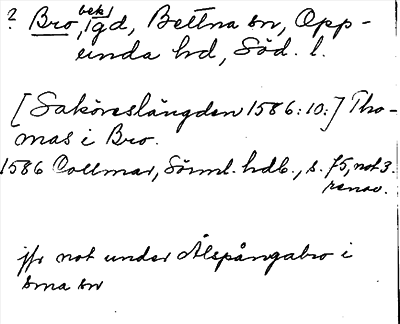 ? Bro, bek. lgd, Bettna sn, Opp-
unda hd, Söd. l.
[Saköreslängden 1586:10:] Tho-
mas i Bro.
1586 Collmar, Sörml. hdl., s. 75, not 3.
renov.
jfr not under Ålspångabro i
sma sn